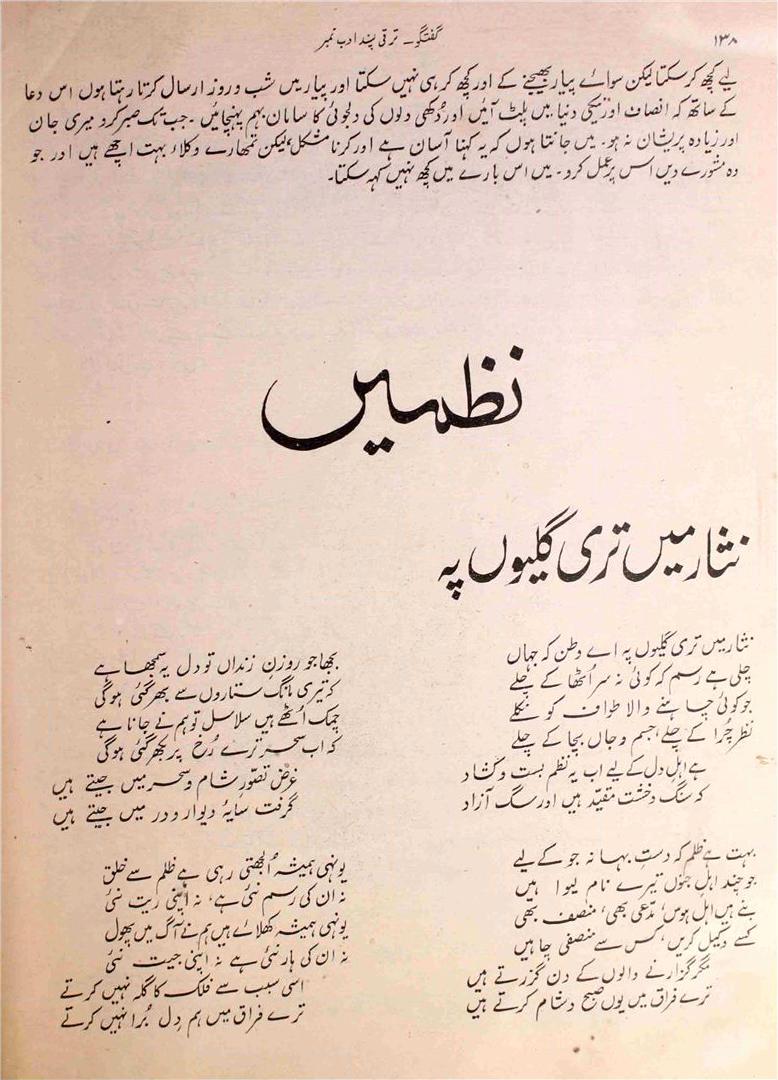 ۱۳۸
گفتگو۔ ترقی پسند ادب نمبر
لیے کچھ کر سکتا لیکن سوائے پیار بھیجنے کے اور کچھ کر ہی نہیں سکتا اور پیار میں شب و روز ارسال کرتا رہتا ہوں اس دعا
کے ساتھ کہ انصاف اور نیکی دنیا میں پلٹ آئیں اور دُکھی دلوں کی دلجوئی کا سامان بہم پہنچائیں۔ جب تک صبر کرو میری جان
اور زیادہ پریشان نہ ہو۔ میں جانتا ہوں کہ یہ کہنا آسان ہے اور کرنا مشکل، لیکن تمھارے وکلاء بہت اچھے ہیں اور جو
وہ مشورے دیں اس پر عمل کرو۔ میں اس بارے میں کچھ نہیں کہہ سکتا۔
نظمیں
نثار میں تری گلیوں پہ
نثار میں تری گلیوں پہ اے وطن کہ جہاں
چلی ہے رسم کہ کوئی نہ سر اُٹھا کے چلے
جو کوئی چاہنے والا طواف کو نکلے
نظر چُرا کے چلے، جسم و جاں بچا کے چلے
ہے اہلِ دل کے لیے اب یہ نظم بست و کشاد
کہ سنگ و خشت مقیّد ہیں اور سگ آزاد
بہت ہے ظلم کہ دستِ بہانہ جو کے لیے
جو چند اہلِ جنوں تیرے نام لیوا ہیں
بنے ہیں اہلِ ہوس، مدّعی بھی، منصف بھی
کسے وکیل کریں، کس سے منصفی چاہیں
مگر گزارنے والوں کے دن گزرتے ہیں
ترے فراق میں یوں صبح و شام کرتے ہیں
بجھا جو روزنِ زنداں تو دل یہ سمجھا ہے
کہ تیری مانگ ستاروں سے بھر گئی ہوگی
چمک اُٹھے ہیں سلاسل تو ہم نے جانا ہے
کہ اب سحر ترے رُخ پر بکھر گئی ہوگی
غرض تصوّرِ شام و سحر میں جیتے ہیں
گرفت سایۂ دیوار و در میں جیتے ہیں
یونہی ہمیشہ اُلجھتی رہی ہے ظلم سے خلق
نہ ان کی رسم نئی ہے، نہ اپنی ریت نئی
یونہی ہمیشہ کھلائے ہیں ہم نے آگ میں پھول
نہ ان کی ہار نئی ہے نہ اپنی جیت نئی
اسی سبب سے فلک کا گلہ نہیں کرتے
ترے فراق میں ہم دل بُرا نہیں کرتے